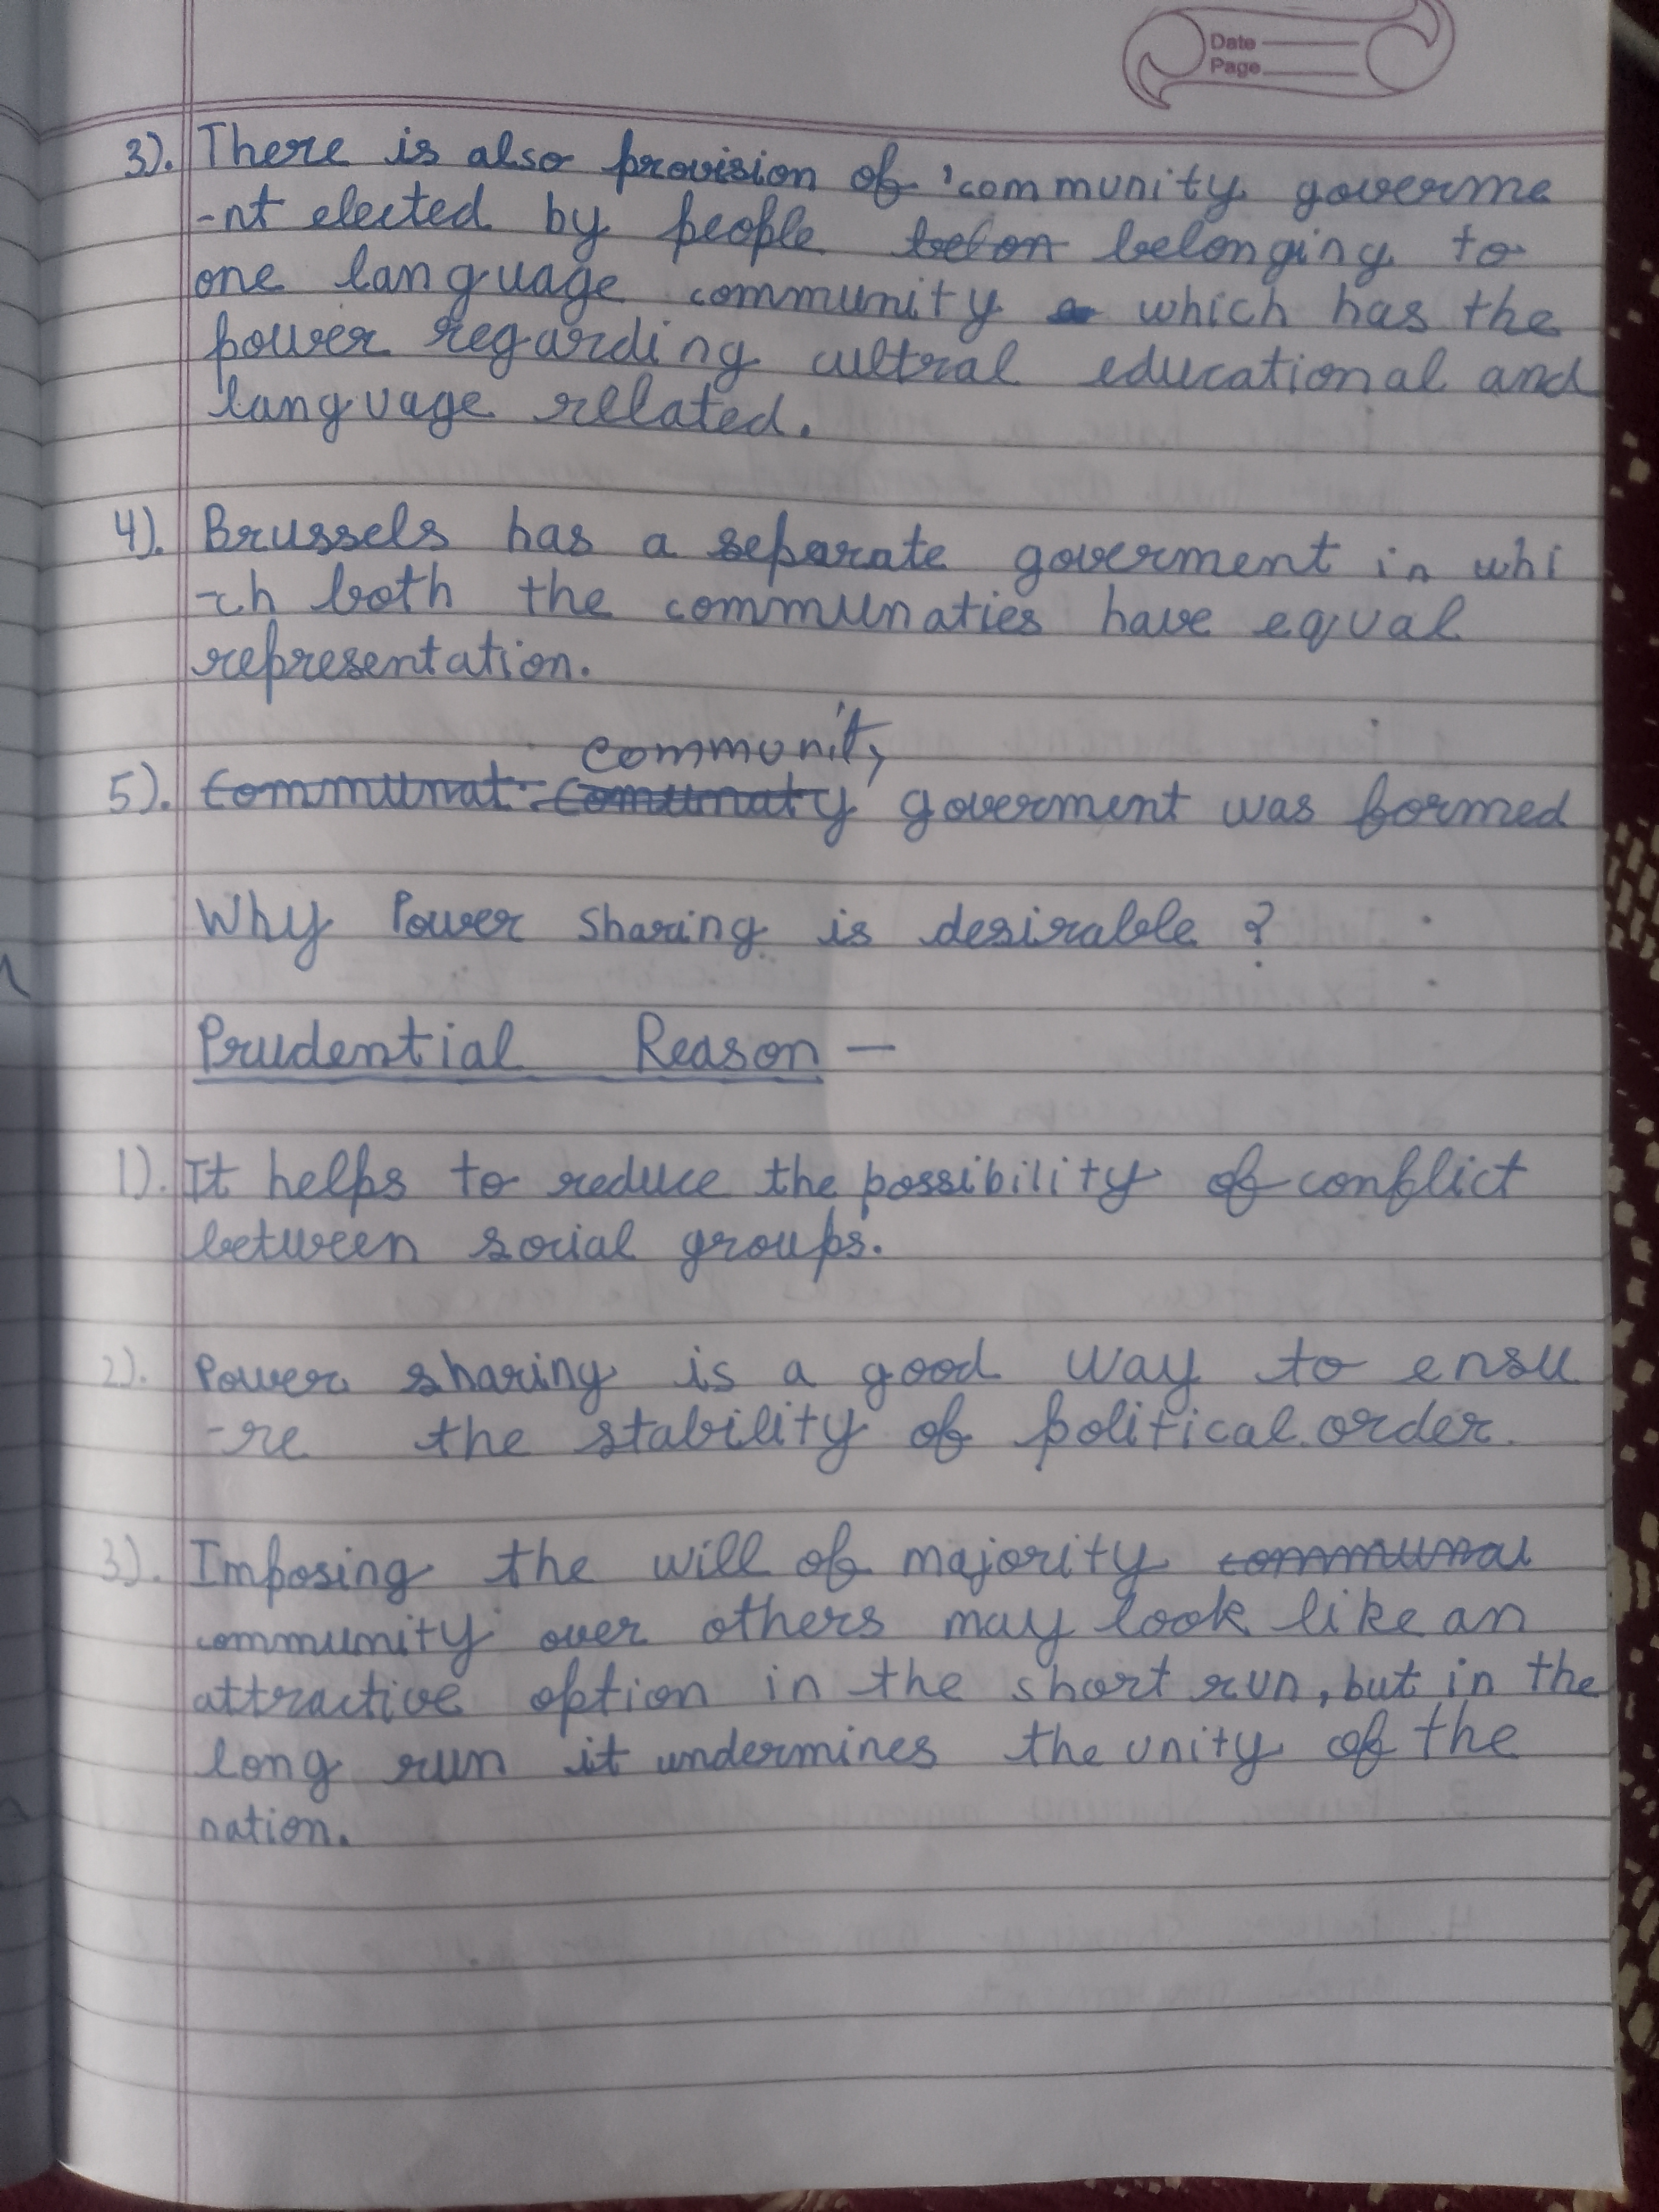 Date
Page
3). There is also provision of 'community goverme
-nt elected by people belon belonging to
one language community which has the
power regarding cultral educational and
language related.
4). Brussels has a separate goverment in whi
-ch both the communaties have equal
representation.
community
5). Communat Comunaty goverment was formed
Why Power Sharing is desirable ?
Prudential Reason —
1). It helps to reduce the possibility of conflict
between social groups.
2). Power sharing is a good way to ensu
-re the stability of political order.
3). Imposing the will of majority communal
community over others may look like an
attractive option in the short run, but in the
long run it undermines the unity of the
nation.